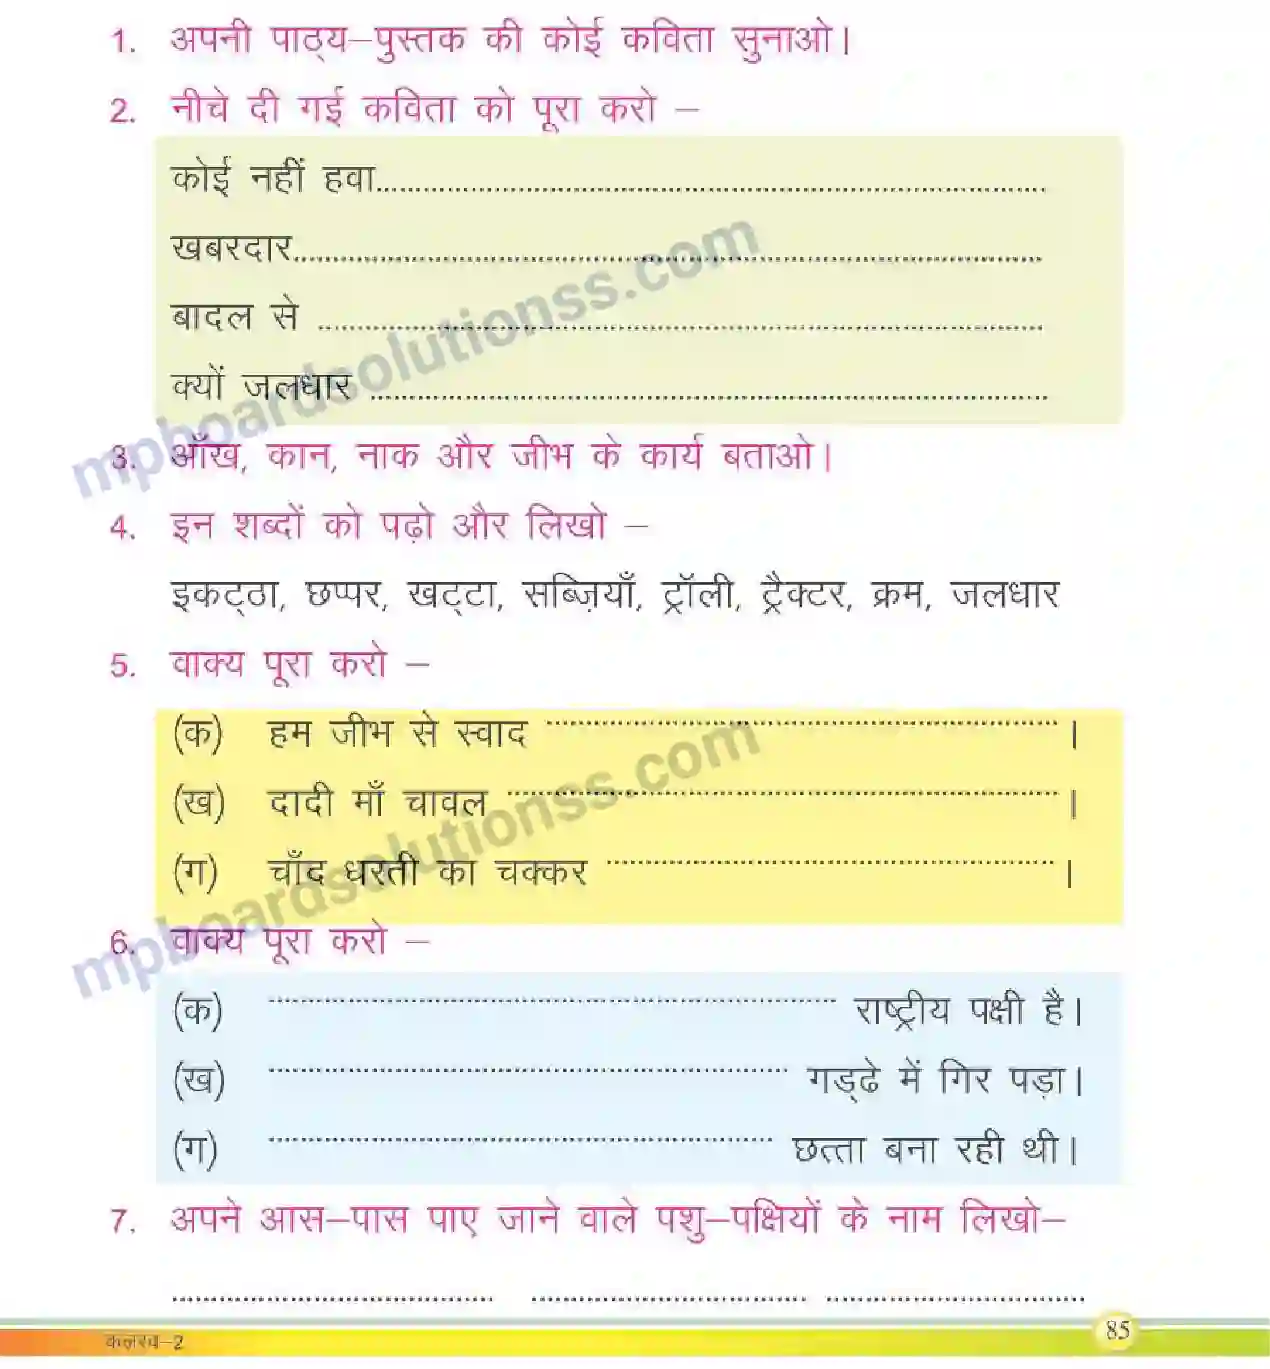 1. अपनी पाठ्य–पुस्तक की कोई कविता सुनाओ।
2. नीचे दी गई कविता को पूरा करो –
कोई नहीं हवा....................
खबरदार....................
बादल से ....................
क्यों जलधार ....................
3. आँख, कान, नाक और जीभ के कार्य बताओ।
4. इन शब्दों को पढ़ो और लिखो –
इकट्ठा, छप्पर, खट्टा, सब्ज़ियाँ, ट्रॉली, ट्रैक्टर, क्रम, जलधार
5. वाक्य पूरा करो –
(क) हम जीभ से स्वाद .................... ।
(ख) दादी माँ चावल .................... ।
(ग) चाँद धरती का चक्कर .................... ।
6. वाक्य पूरा करो –
(क) .................... राष्ट्रीय पक्षी है।
(ख) .................... गड्ढे में गिर पड़ा।
(ग) .................... छत्ता बना रही थी।
7. अपने आस–पास पाए जाने वाले पशु–पक्षियों के नाम लिखो–
.................... .................... ....................
कलरव–2 85
mpboardsolutionss.com
mpboardsolutionss.com